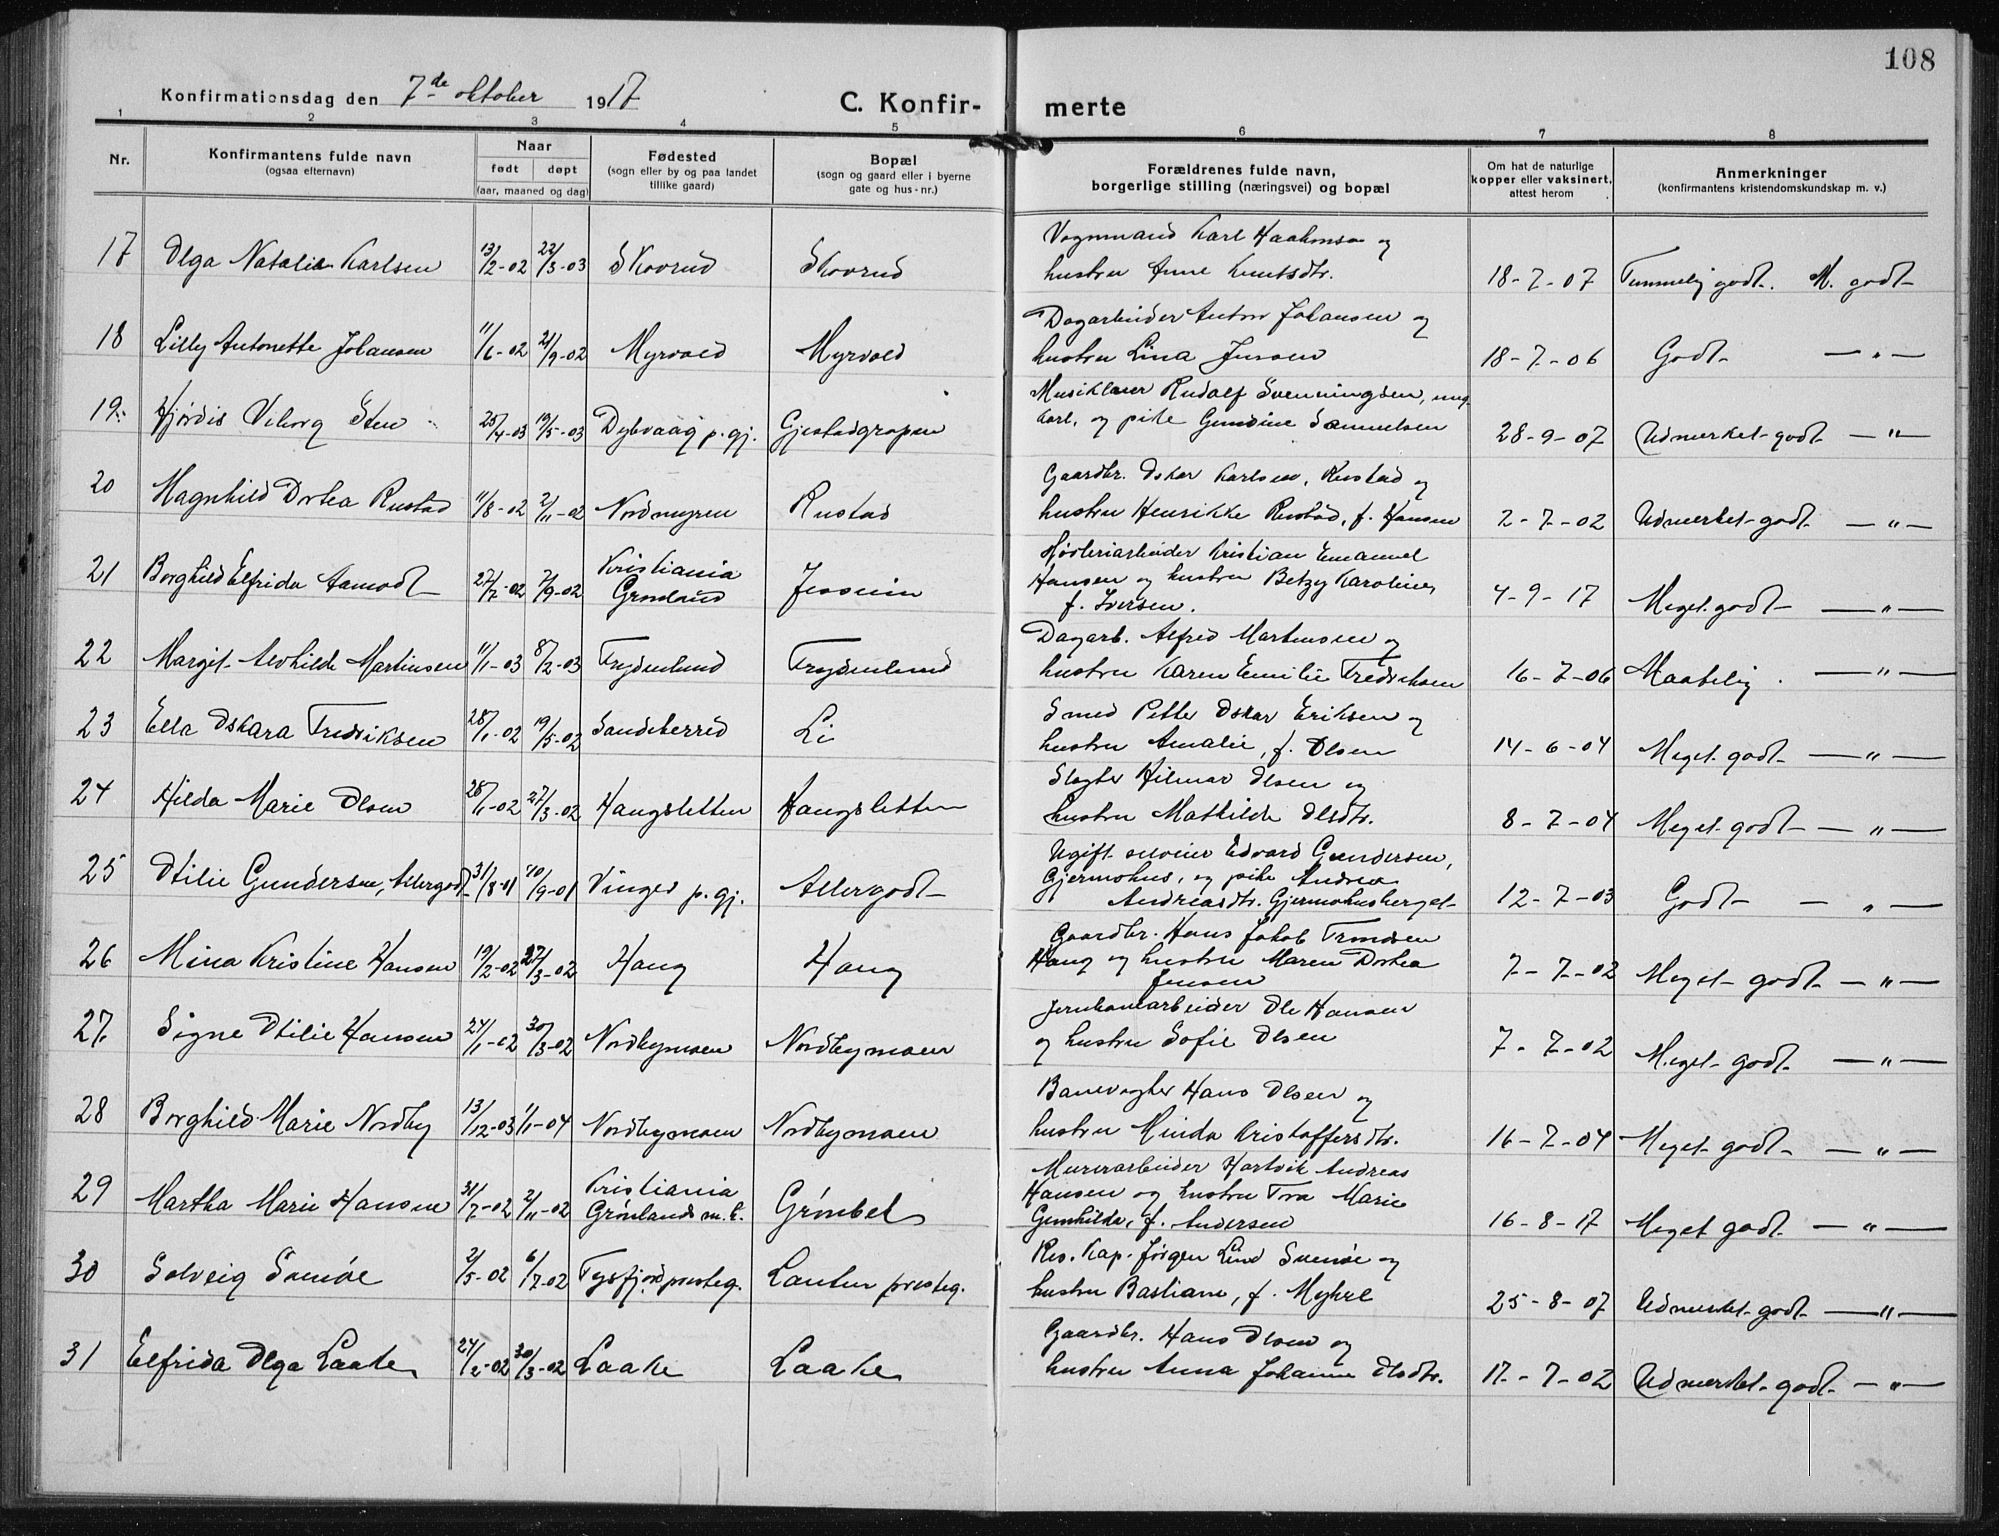 108
Konfirmationsdag den 7de oktober 1917
C. Konfir- merte
1 2 3 4 5 6 7 8
Nr.
Konfirmantens fulde navn
(ogsaa efternavn)
Naar
født døpt
(aar, maaned og dag)
Fødested
(sogn eller by og paa landet
tillike gaard)
Bopæl
(sogn og gaard eller i byerne
gate og hus-nr.)
Forældrenes fulde navn,
borgerlige stilling (næringsvei) og bopæl
Om hat de naturlige
kopper eller vaksinert,
attest herom
Anmerkninger
(konfirmantens kristendomskundskap m. v.)
Vognmand Karl Haakonsen og
17 Olga Natalie Karlsen 13/2-02 22/3-03 Skovrud Skovrud hustru Anne Knutsdtr. 18-7-07 Temmelig godt. M. godt
Dagarbeider Anton Johansen og
18 Lilly Antonette Johansen 11/6-02 21/9-02 Myrvold Myrvold hustru Lina Jensen 18-7-06 Godt — " —
Musiklærer Rudolf Svenningsen, ung-
19. Hjørdis Viborg Sten 25/4-03 19/5-03 Dybvaag p.gj. Gjestadgropen karl, og pike Gundine Samuelsen 28-9-07 Udmerket godt — " —
Gaardbr. Oskar Karlsen, Rustad og
20 Magnhild Dortea Rustad 11/8-02 2/11-02 Nordmyren Rustad hustru Henrikke Rustad, f. Hansen 2-7-02 Udmerket godt — " —
Høvleriarbeider Kristian Emanuel
21 Borghild Elfrida Aamodt 27/7-02 7/9-02 Kristiania Grønland Jessum Hansen og hustru Betzy Karoline, 4-9-17 Meget godt — " —
f. Iversen.
Dagarb. Alfred Martinsen og
22 Margit Alvhilde Martinsen 11/1-03 8/2-03 Frydenlund Frydenlund hustru Karen Emilie Fredriksen 16-7-06 Maatelig. — " —
Smed Petter Oskar Eriksen og
23 Ella Oskara Fredriksen 28/1-02 19/5-02 Sandsherred Li hustru Amalie, f. Olsen 14-6-04 Meget godt — " —
Slagter Hilmar Olsen og
24 Hilda Marie Olsen 28/1-02 27/3-02 Haugsletten Haugsletten hustru Mathilde Olsdtr. 8-7-04 Meget godt — " —
Ugift selveier Edvard Gundersen,
25 Otilie Gundersen, Allergodt 31/8-01 10/9-01 Vinger p.gj. Allergodt Gjermshus, og pike Andrea 12-7-03 Godt — " —
Andreasdtr. Gjermshusberget
Gaardbr. Hans Jakob Trondsen
26 Mina Kristine Hansen 19/2-02 27/3-02 Haug Haug Haug og hustru Maren Dortea 7-7-02 Meget godt — " —
Jensen
Jernbanearbeider Ole Hansen
27. Signe Otilie Hansen 24/1-02 30/3-02 Nordbymoen Nordbymoen og hustru Sofie Olsen 7-7-02 Meget godt — " —
Banevogter Hans Olsen og
28 Borghild Marie Nordby 13/12-03 1/1-04 Nordbymoen Nordbymoen hustru Minda Kristoffersdtr. 16-7-04 Meget godt — " —
Murerarbeider Hartvik Andreas
29 Martha Marie Hansen 31/7-02 2/11-02 Kristiania Grønlands m.h. Grønbek Hansen og hustru Tora Marie
Gunhilda, f. Andersen 16-8-17 Meget godt — " —
Res. Kap. Jørgen Lind Suenøe og
30 Solveig Suenøe 2/5-02 6/7-02 Tysfjord presteg. Lauten presteg. hustru Bastiane, f. Myhre 25-8-07 Udmerket godt — " —
Gaardbr. Hans Olsen og
31 Elfrida Olga Laake 24/2-02 30/3-02 Laake Laake hustru Anna Johanne Olsdtr. 17-7-02 Udmerket godt — " —